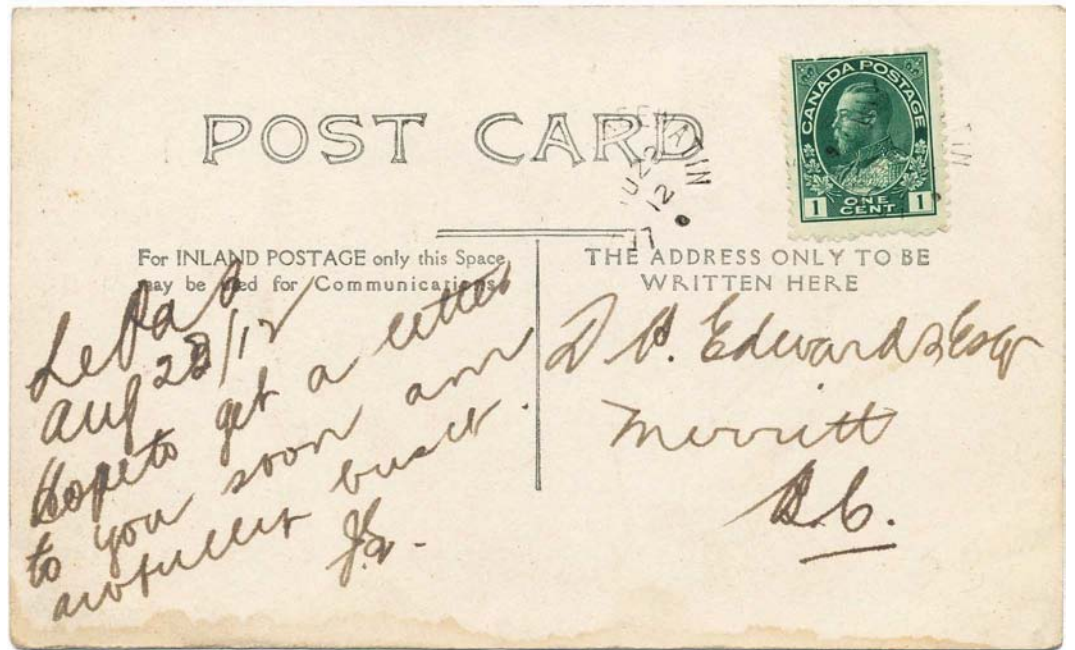 POST CARD
CANADA POSTAGE
1 ONE CENT 1
EEWATIN
U 22
12
For INLAND POSTAGE only this Space
may be used for Communications.
THE ADDRESS ONLY TO BE
WRITTEN HERE
Le Pas
Aug 22/12
Hope to get a letter
to you soon am
awfully busy.
D Edwards Esqr
Merritt
B.C.